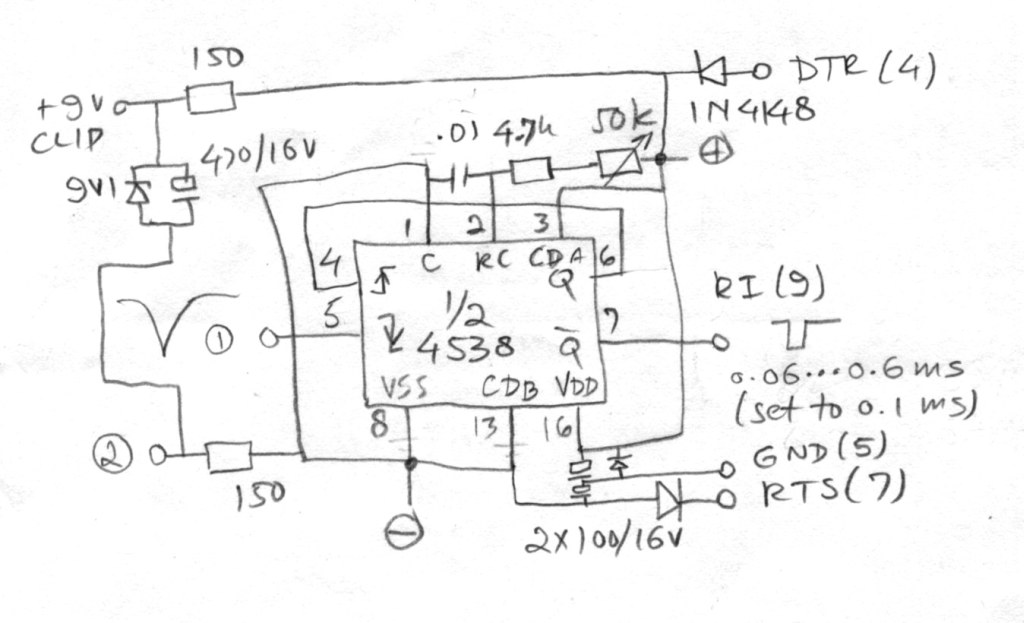 150
DTR (4)
+9V
CLIP
1N4148
.01 4.7k 50k
+
470/16V
9V1
1 2 3
4 C RC CDA 6
Q
RI (9)
5 1/2 7
1
4538 Q̅
0.06...0.6 ms
(set to 0.1 ms)
VSS CDB VDD
8 13 16
2
GND (5)
RTS (7)
150
−
2x100/16V